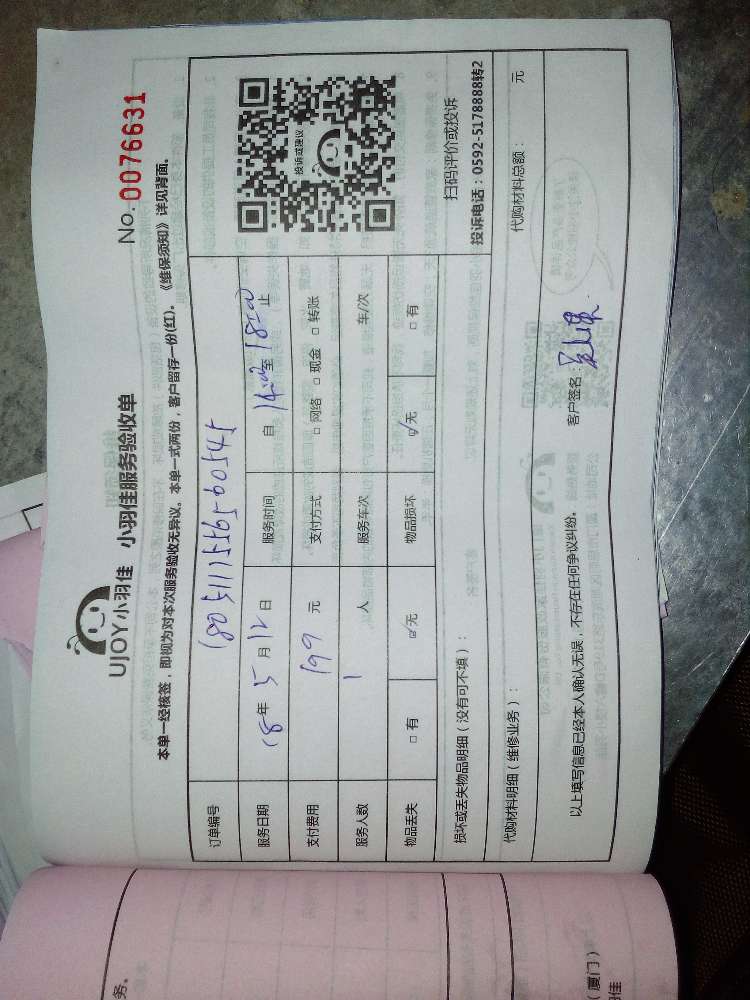 No. 0076631
UJOY小羽佳 小羽佳服务验收单
本单一经核签，即视为对本次服务验收无异议。本单一式两份，客户留存一份(红)。《维保须知》详见背面。
订单编号
服务日期 18年 5月 12日 服务时间 自 14:00 至 18:00 止
支付费用 199 元 支付方式 □ 网络 □ 现金 □ 转账
服务人数 1 人 服务车次 车/次
物品丢失 □ 有 ☑ 无 物品损坏 ☑ 无 □ 有
投诉或建议
扫码评价或投诉
投诉电话：0592-5178888转2
损坏或丢失物品明细（没有可不填）：
代购材料明细（维修业务）： 代购材料总额： 元
以上填写信息已经本人确认无误，不存在任何争议纠纷。 客户签名：
务。
厦门）
佳